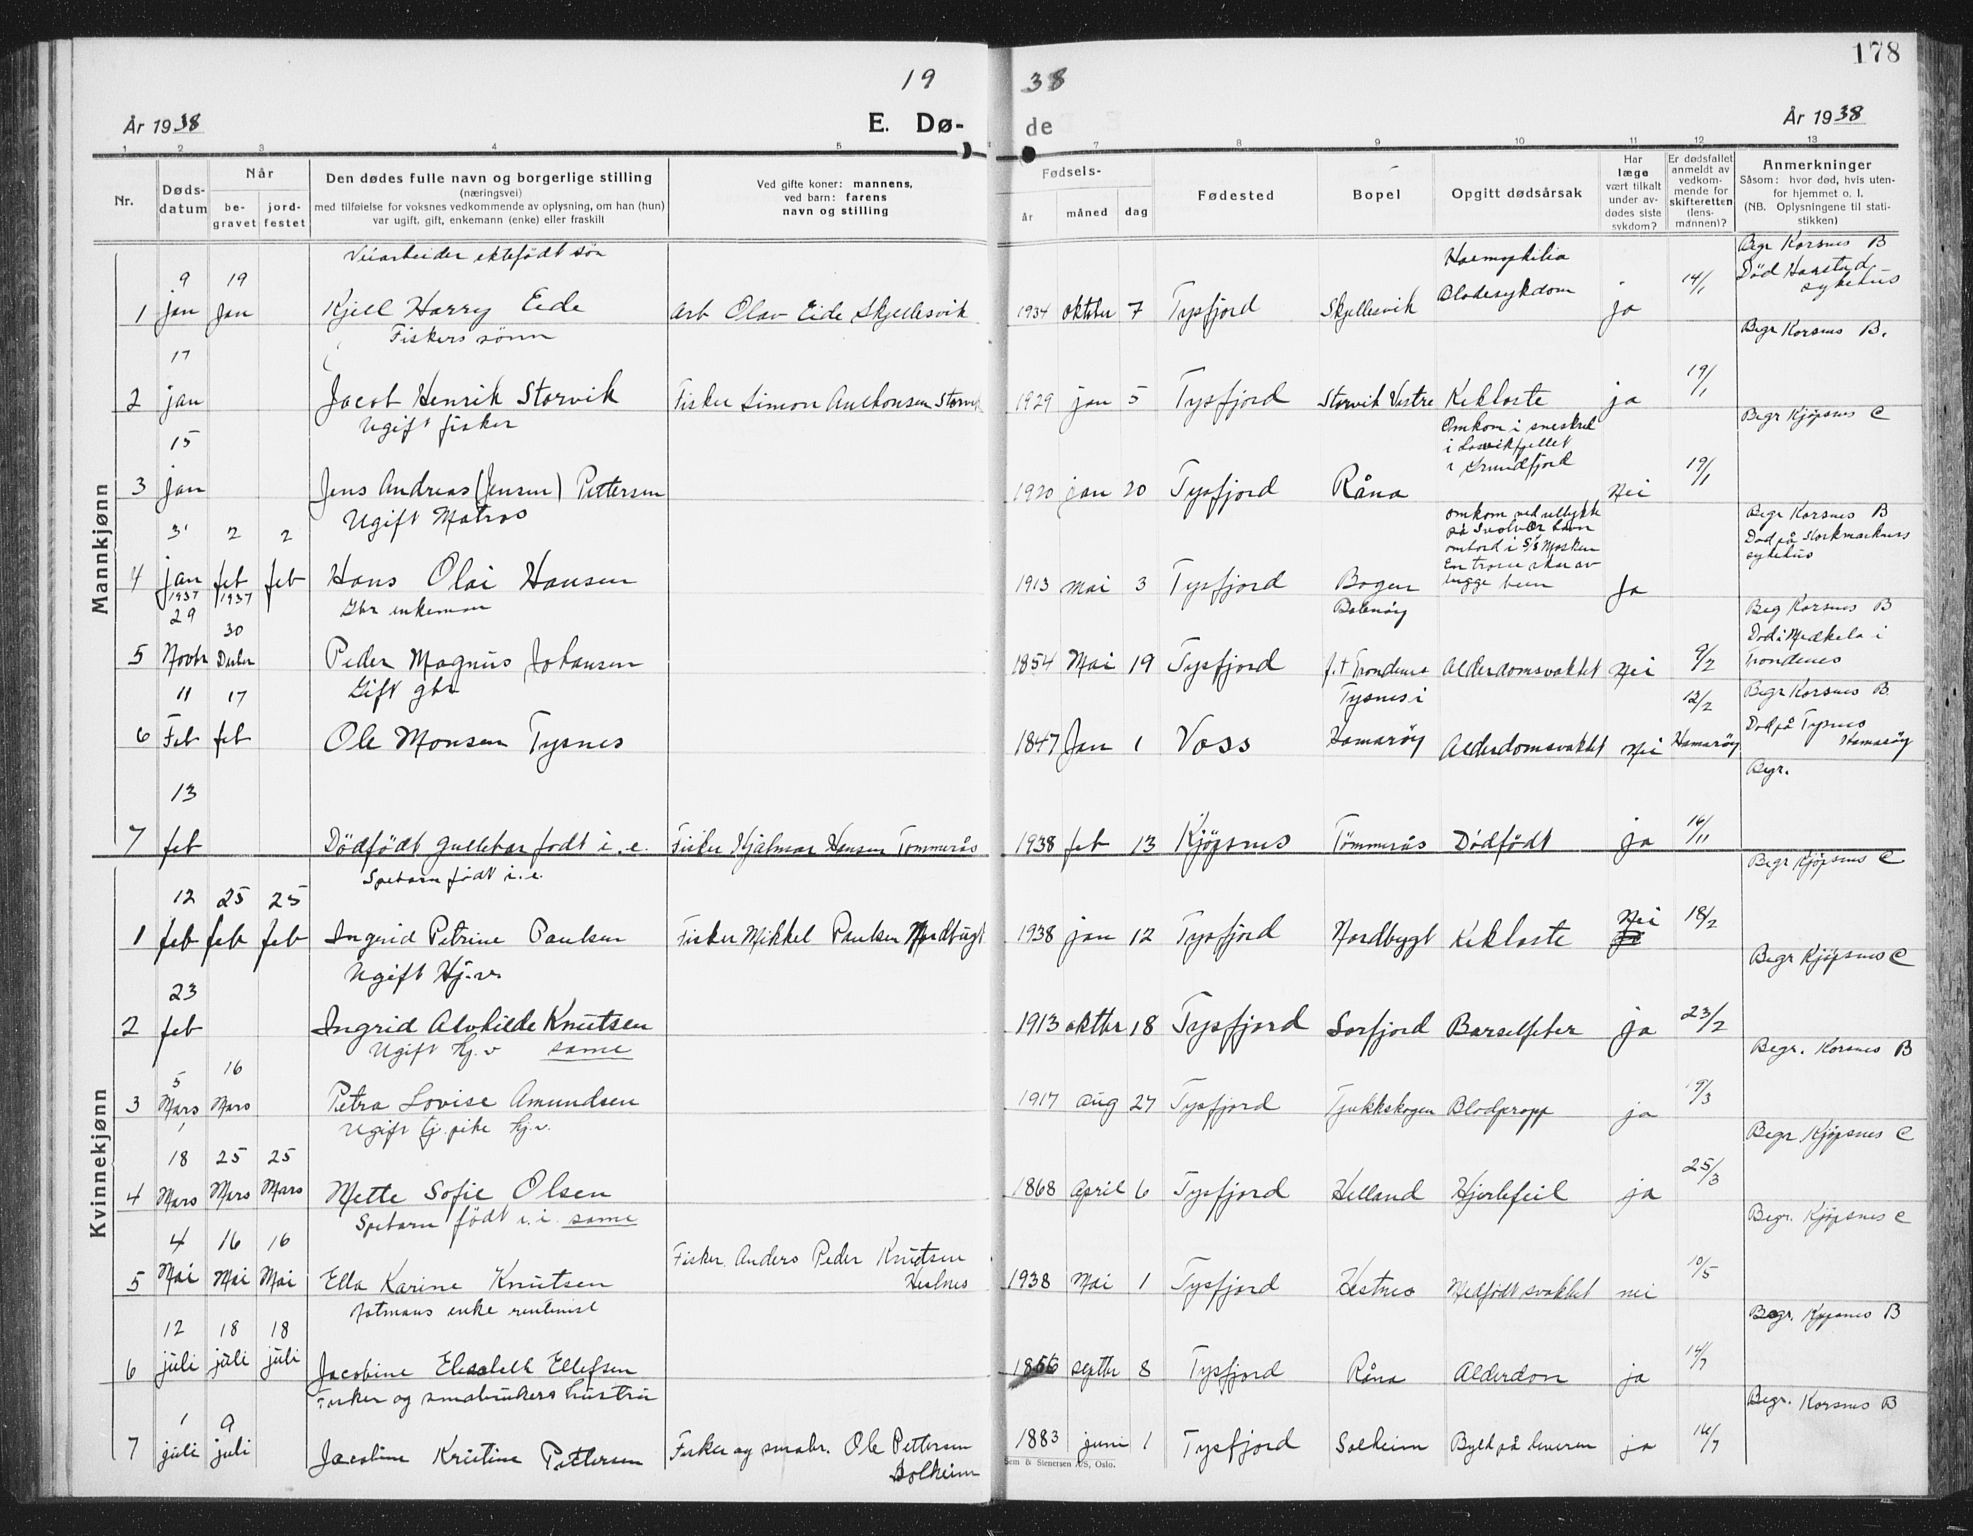 178
19 38
År 1938 E. Dø- de År 1938
1 2 3 4 5 7 8 9 10 11 12 13
Nr. Døds-datum Når be-gravet jord-festet Den dødes fulle navn og borgerlige stilling (næringsvei) med tilføielse for voksnes vedkommende av oplysning, om han (hun) var ugift, gift, enkemann (enke) eller fraskilt Ved gifte koner: mannens, ved barn: farens navn og stilling Fødsels- år måned dag Fødested Bopel Opgitt dødsårsak Har læge vært tilkalt under av-dødes siste sykdom? Er dødsfallet anmeldt av vedkom-mende for skifteretten (lens-mannen)? Anmerkninger Såsom: hvor død, hvis uten-for hjemmet o. l. (NB. Oplysningene til stati-stikken)
Mannkjønn
Veiarbeider ektefødt søn Haemophilia Begr Korsnes B
9 19 14/1 Død Harstad sykehus
1 jan jan Kjell Harry Eide Arb Olav Eide Skjellesvik 1934 oktober 7 Tysfjord Skjellesvik Blodesykdom ja
Fiskers sønn Begr Korsnes B.
17 19/1
2 jan Jacob Henrik Storvik Fisker Simon Anthonsen Storvik 1929 jan 5 Tysfjord Storvik Vestre Kikhoste ja
Ugift fisker Omkom i sneskred Begr Kjøpsnes C
15 i fjellet i Grundfjord 19/1
3 jan Jens Andreas (Jensen) Pettersen 1920 jan 20 Tysfjord Råna Nei
Ugift Matros omkom ved ulykke Begr Korsnes B
31 2 2 på Svolvær havn ombord i S/S Mosken Død på Stokmarknes sykehus
4 jan feb feb Hans Olai Hansen 1913 mai 3 Tysfjord Bogen En trosse skar av begge ben Ja
1937 1937 Gbr enkeman Begr Korsnes B
29 30 Død i Medkila i
5 Novbr Desbr Peder Magnus Johansen 1854 Mai 19 Tysfjord f.t Trondenes Alderdomsvakhet Nei 9/2 Trondenes
11 17 Gift gbr Tysnes i 12/2 Begr Korsnes B
6 Feb feb Ole Monsen Tysnes 1847 Jan 1 Voss Hamarøy Alderdomsvakhet Nei Hamarøy Død på Tysnes Hamarøy
Begr.
13
7 feb Dødfødt guttebarn født i.e. Fisker Hjalmar Hansen Tømmerås 1938 feb 13 Kjøpsnes Tømmerås Dødfødt ja 16/11
Kvinnekjønn
Spebarn født i.e. Begr Kjøpsnes C
12 25 25 Nei 18/2
1 feb feb feb Ingrid Petrine Paulsen Fisker Mikkel Paulsen Nordbugt 1938 jan 12 Tysfjord Nordbygt Kikhoste ja
Ugift Hj.v. Begr Kjøpsnes C
23
2 feb Ingrid Alvhilde Knutsen 1913 oktbr 18 Tysfjord Sørfjord Barselfeber ja 23/2
Ugift hj.v same Begr. Korsnes B
5 16
3 Mars Mars Petra Lovise Amundsen 1917 aug 27 Tysfjord Tjukkskogen Blodpropp ja 9/3
Ugift tj. pike hj.v. Begr Kjøpsnes C
18 25 25
4 Mars Mars Mars Mette Sofie Olsen 1868 April 6 Tysfjord Helland Hjertefeil ja 25/3
Spebarn født i.e. same Begr. Kjøpsnes C
4 16 16 Fisker Anders Peder Knutsen
5 Mai Mai Mai Ella Karine Knutsen Hestnes 1938 Mai 1 Tysfjord Hestnes Medfødt svakhet nei 10/5
enke Begr. Korsnes B
12 18 18
6 juli juli juli Jacobine Elisabeth Ellefsen 1856 septbr 8 Tysfjord Råna Alderdom ja 14/7
Fisker og småbrukers hustru Begr. Korsnes B
1 9
7 juli juli Jacobine Kristine Pettersen Fisker og småbr. Ole Pettersen Solheim 1883 juni 1 Tysfjord Solheim Byld på leveren ja 16/7
Sem & Stenersen A/S, Oslo.